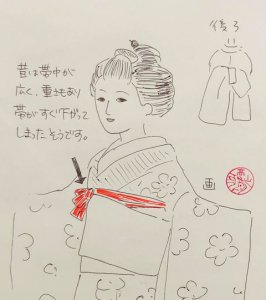 昔は帯巾が
広く、重さもあり
帯がすぐ下がって
しまったそうです。
後ろ
画